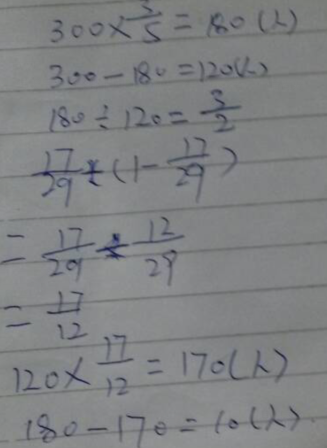 300×3/5=180(人)
300-180=120(人)
180÷120=3/2
17/29÷(1-17/29)
=17/29÷12/29
=17/12
120×17/12=170(人)
180-170=10(人)